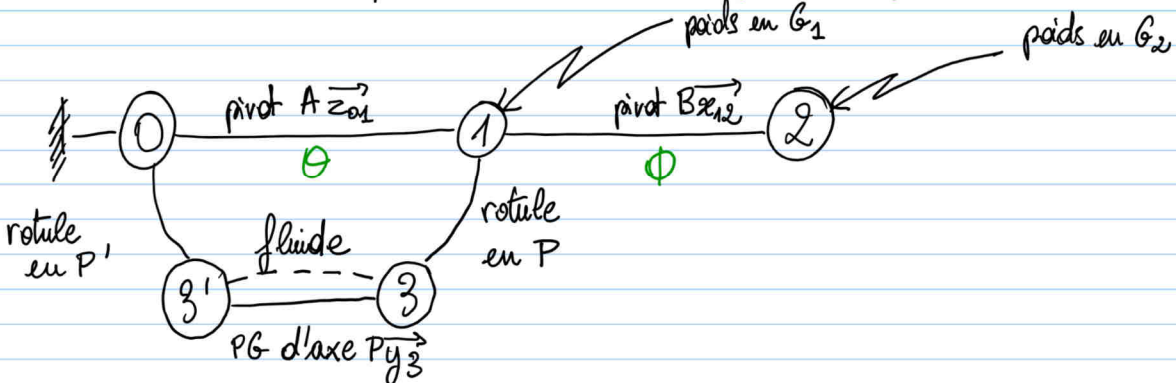 poids en G₁
poids en G₂
pivot A z₀₁
pivot B x₁₂
0
1
2
θ
Φ
rotule
en P'
fluide
rotule
en P
3'
3
PG d'axe Py₃